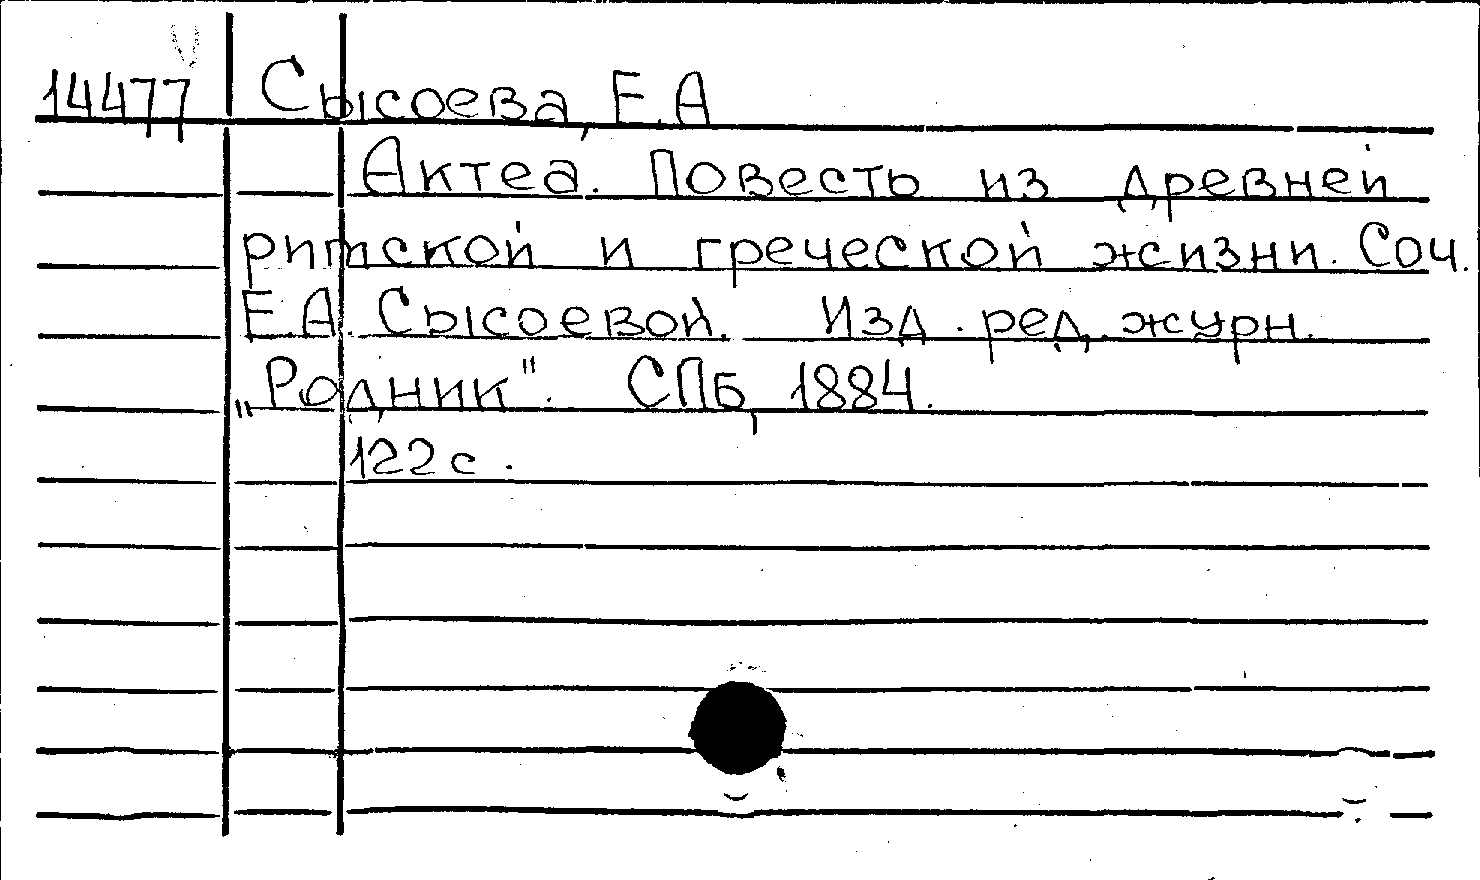 14477 Сысоева, Е.А
Актеа. Повесть из древней
римской и греческой жизни. Соч.
Е.А. Сысоевой. Изд. ред. журн.
„Родник". СПб, 1884.
122 с.